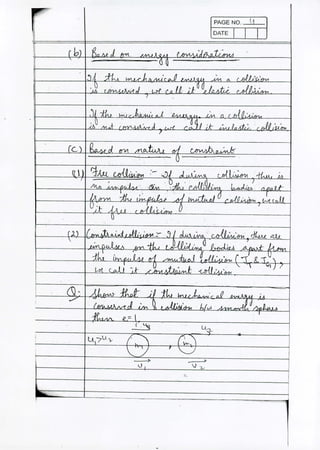 PAGE NO. 11
DATE
(b) Based on energy considerations
If the mechanical energy in a collision
is conserved, we call it elastic collision.
If the mechanical energy in a collision
is not conserved, we call it inelastic collision
(c) Based on nature of constraint
(1) Free collision :- If during collision, there is
no impulse on the colliding bodies apart
from the impulse of mutual collision, we call
it free collision.
(2) Constrained collision :- If during collision, there are
impulses on the colliding bodies apart from
the impulse of mutual collision
we call it constraint collision.
Q:- Show that if the mechanical energy is
conserved in a collision b/w smooth spheres
then e=1.
u1 u2
u1>u2
m1 , m2
v1 v2